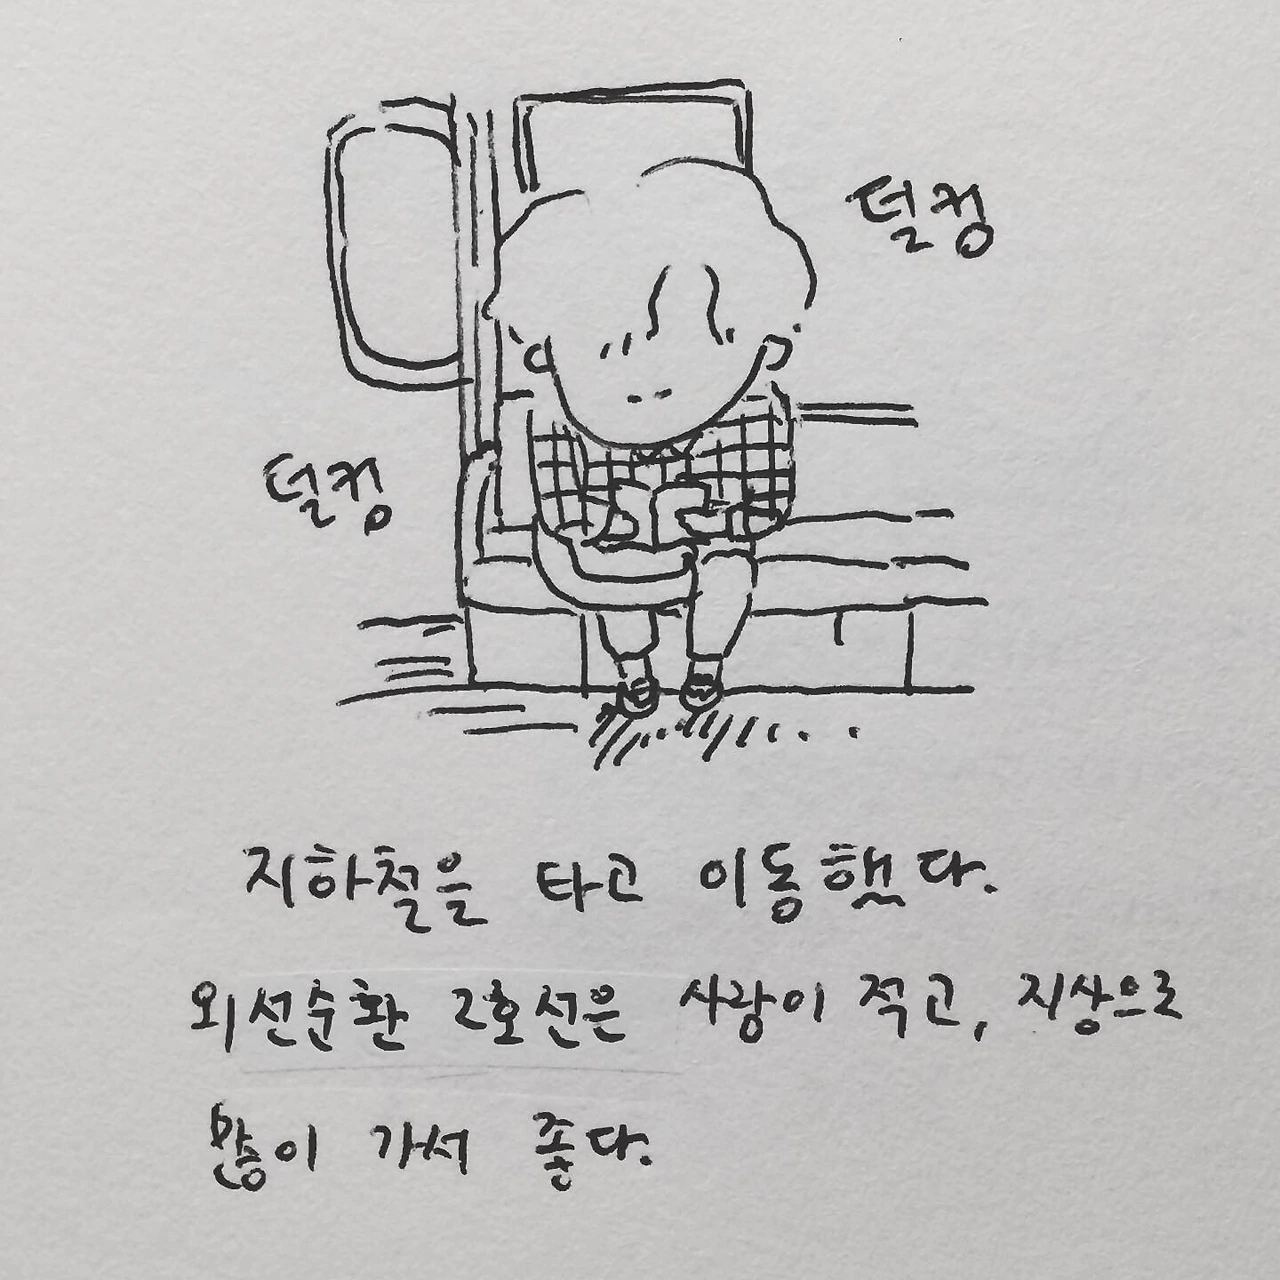 덜컹
덜컹
지하철을 타고 이동했다.
외선순환 2호선은 사람이 적고, 지상으로
많이 가서 좋다.